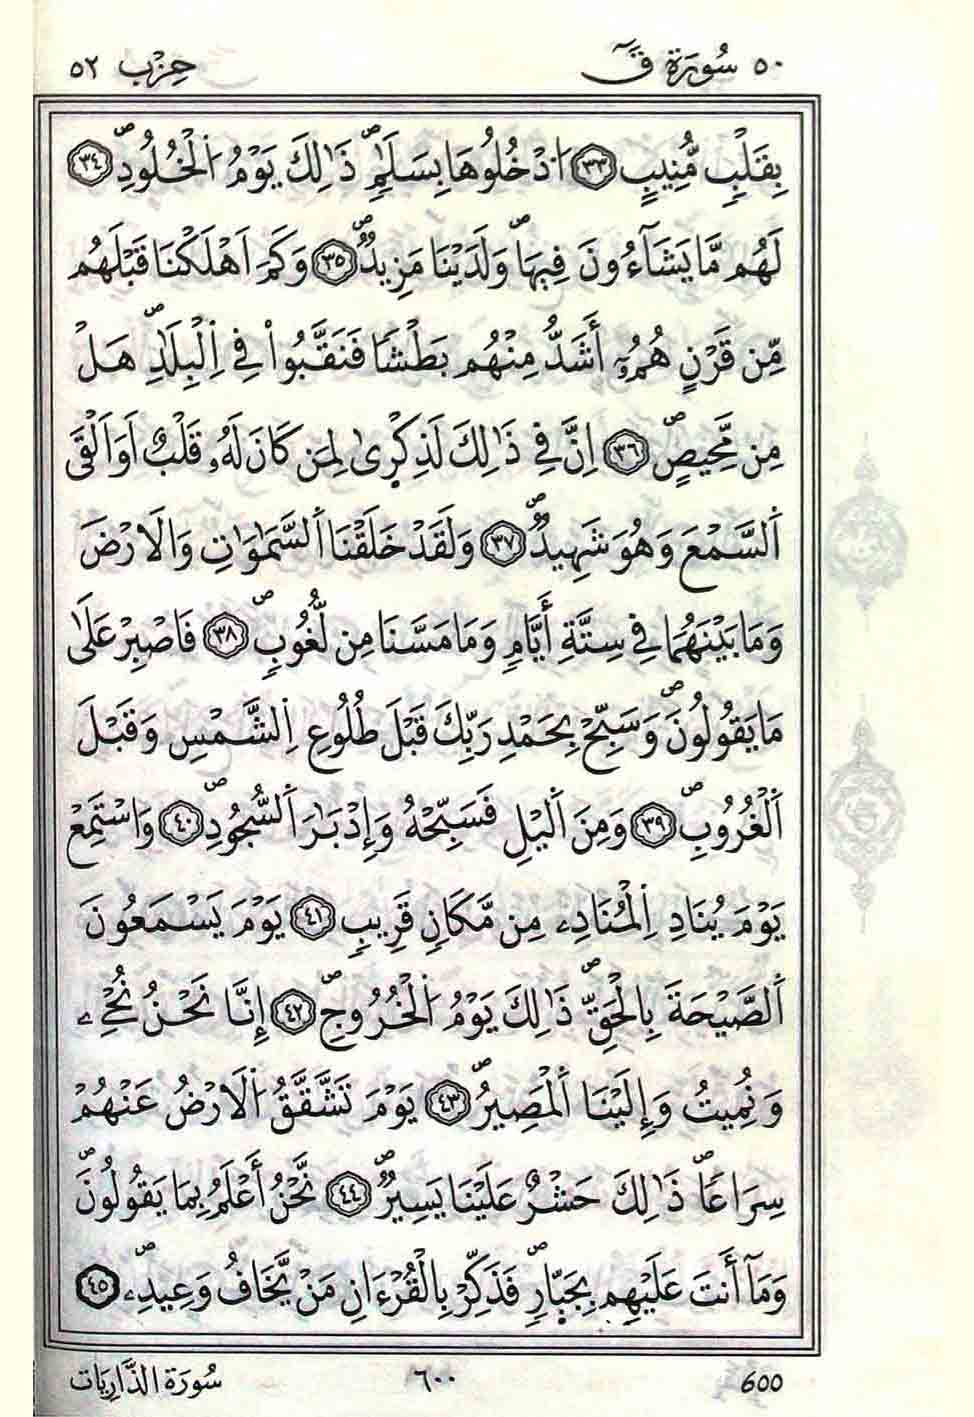 ٥٠ سُورَةُ قٓ حِزْب ٥٢
بِقَلْبٖ مُّنِيبٍ ٣٣ اَ۟دْخُلُوهَا بِسَلَٰمٖۖ ذَٰلِكَ يَوْمُ اُ۬لْخُلُودِۖ ٣٤
لَهُم مَّا يَشَآءُونَ فِيهَاۖ وَلَدَيْنَا مَزِيدٞۖ ٣٥ وَكَمَ اَهْلَكْنَا قَبْلَهُم
مِّن قَرْنٍ هُمُۥٓ أَشَدُّ مِنْهُم بَطْشاٗ فَنَقَّبُواْ فِے اِ۬لْبِلَٰدِۖ هَلْ
مِن مَّحِيصٍۖ ٣٦ اِنَّ فِے ذَٰلِكَ لَذِكْر۪ىٰ لِمَن كَانَ لَهُۥ قَلْبٌ اَوَ اَلْقَى
اَ۬لسَّمْعَ وَهُوَ شَهِيدٞۖ ٣٧ وَلَقَدْ خَلَقْنَا اَ۬لسَّمَٰوَٰتِ وَالَارْضَ
وَمَا بَيْنَهُمَا فِے سِتَّةِ أَيَّامٖ وَمَا مَسَّنَا مِن لُّغُوبٖۖ ٣٨ فَاصْبِرْ عَلَىٰ
مَا يَقُولُونَۖ وَسَبِّحْ بِحَمْدِ رَبِّكَ قَبْلَ طُلُوعِ اِ۬لشَّمْسِ وَقَبْلَ
اَ۬لْغُرُوبِۖ ٣٩ وَمِنَ اَ۬ليْلِ فَسَبِّحْهُ وَإِدْبَٰرَ اَ۬لسُّجُودِۖ ٤٠ وَاسْتَمِعْ
يَوْمَ يُنَادِ اِ۬لْمُنَادِۦ مِن مَّكَانٖ قَرِيبٖ ٤١ يَوْمَ يَسْمَعُونَ
اَ۬لصَّيْحَةَ بِالْحَقِّۖ ذَٰلِكَ يَوْمُ اُ۬لْخُرُوجِۖ ٤٢ إِنَّا نَحْنُ نُحْيِۦ
وَنُمِيتُ وَإِلَيْنَا اَ۬لْمَصِيرُۖ ٤٣ يَوْمَ تَشَّقَّقُ اُ۬لَارْضُ عَنْهُمْ
سِرَاعاٗۖ ذَٰلِكَ حَشْرٌ عَلَيْنَا يَسِيرٞۖ ٤٤ نَّحْنُ أَعْلَمُ بِمَا يَقُولُونَۖ
وَمَآ أَنتَ عَلَيْهِم بِجَبّ۪ارٖۖ فَذَكِّرْ بِالْقُرْءَانِ مَنْ يَّخَافُ وَعِيدِۦۖ ٤٥
600 ٦٠٠ سُورَة الذَّارِيَات